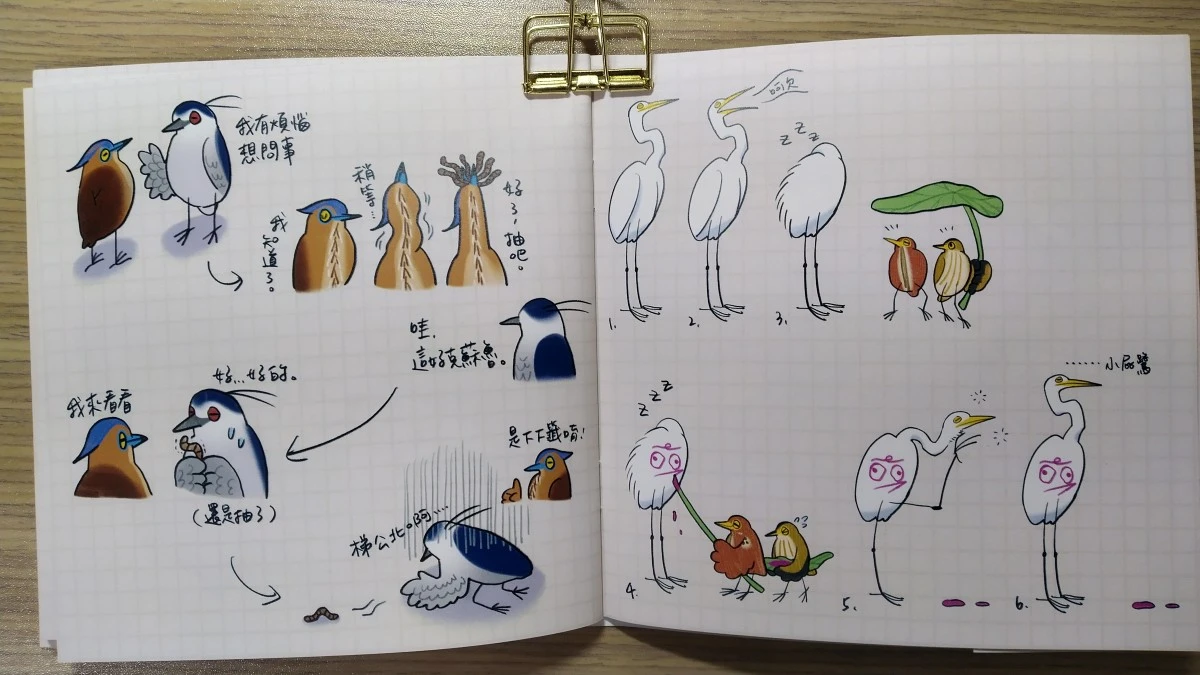 我有煩惱
想問事
我知道了。
稍等...
好了，抽吧。
哇，
這好克蘇魯。
我來看看
好...好的。
（還是抽了）
是下下籤唷！
梯公北。阿...
呵欠
z z z
1.
2.
3.
z z z
4.
5.
......小屁鷺
6.